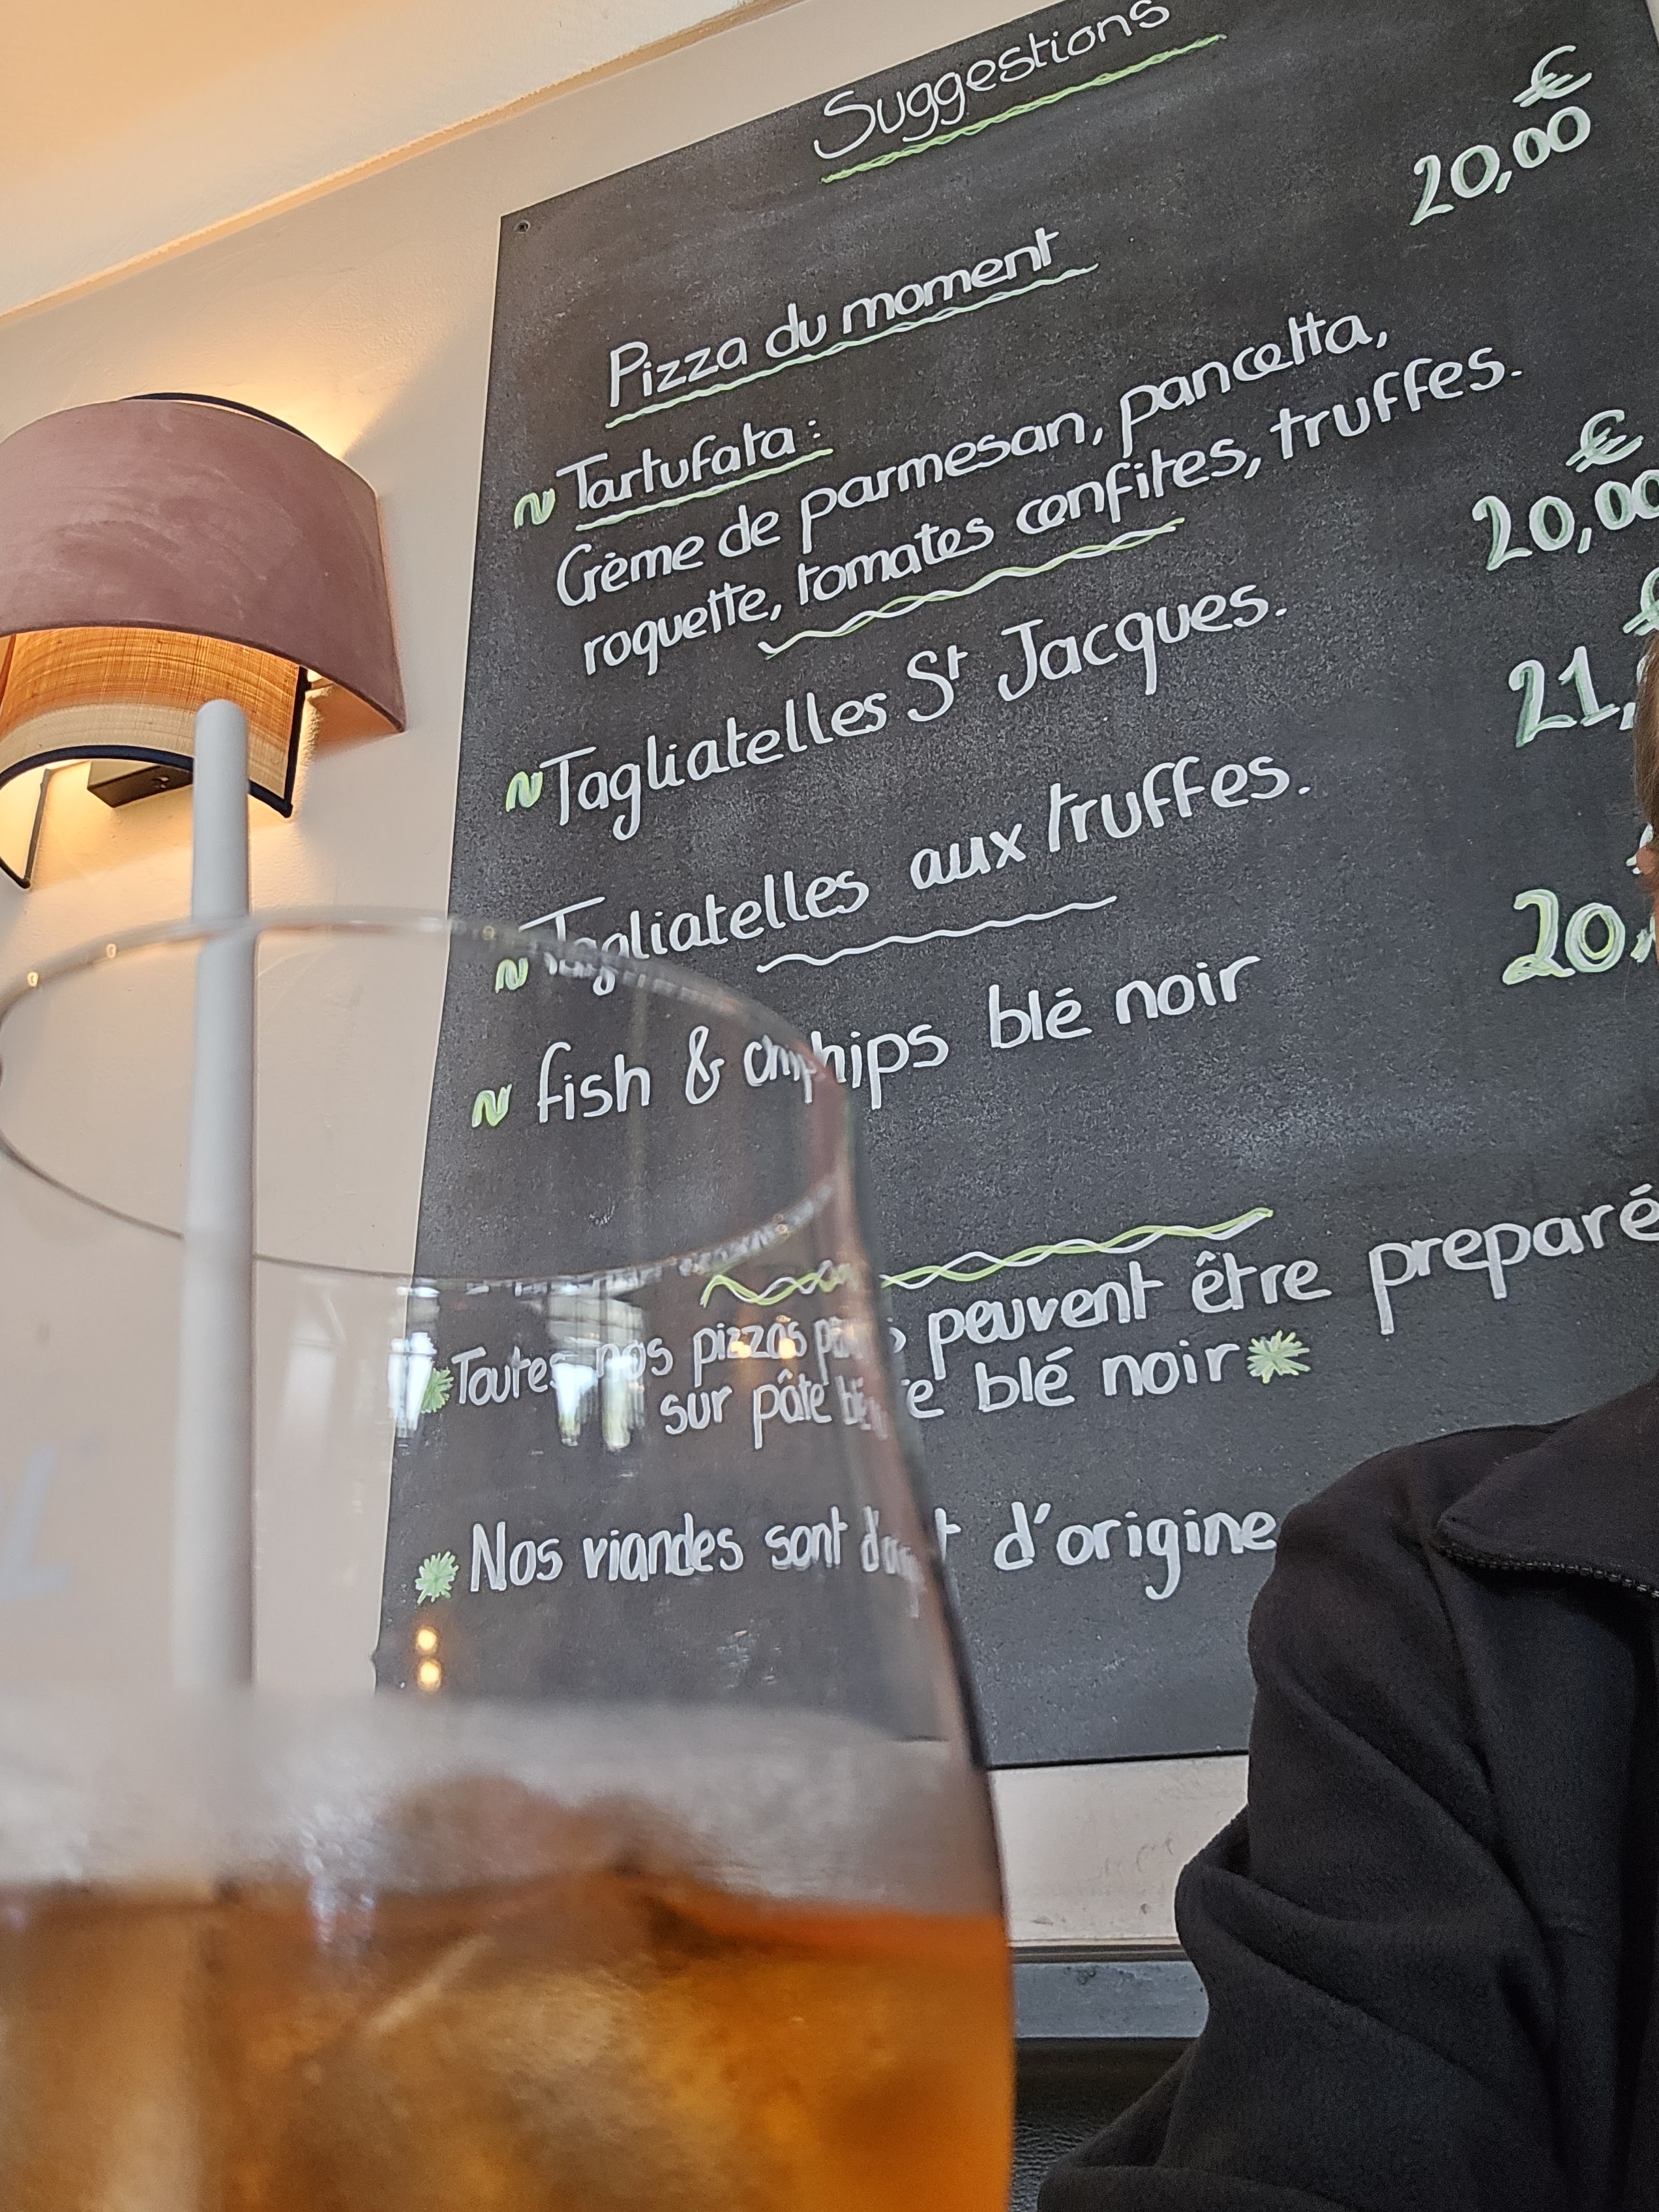 Suggestions
€
Pizza du moment 20,00
~ Tartufata:
Crème de parmesan, pancetta,
roquette, tomates confites, truffes.
€
~ Tagliatelles St Jacques. 20,00
€
~ Tagliatelles aux truffes. 21,
~ fish & chips blé noir 20,
Toutes nos pizzas peuvent être preparé
sur pâte blé noir
Nos viandes sont d'origine